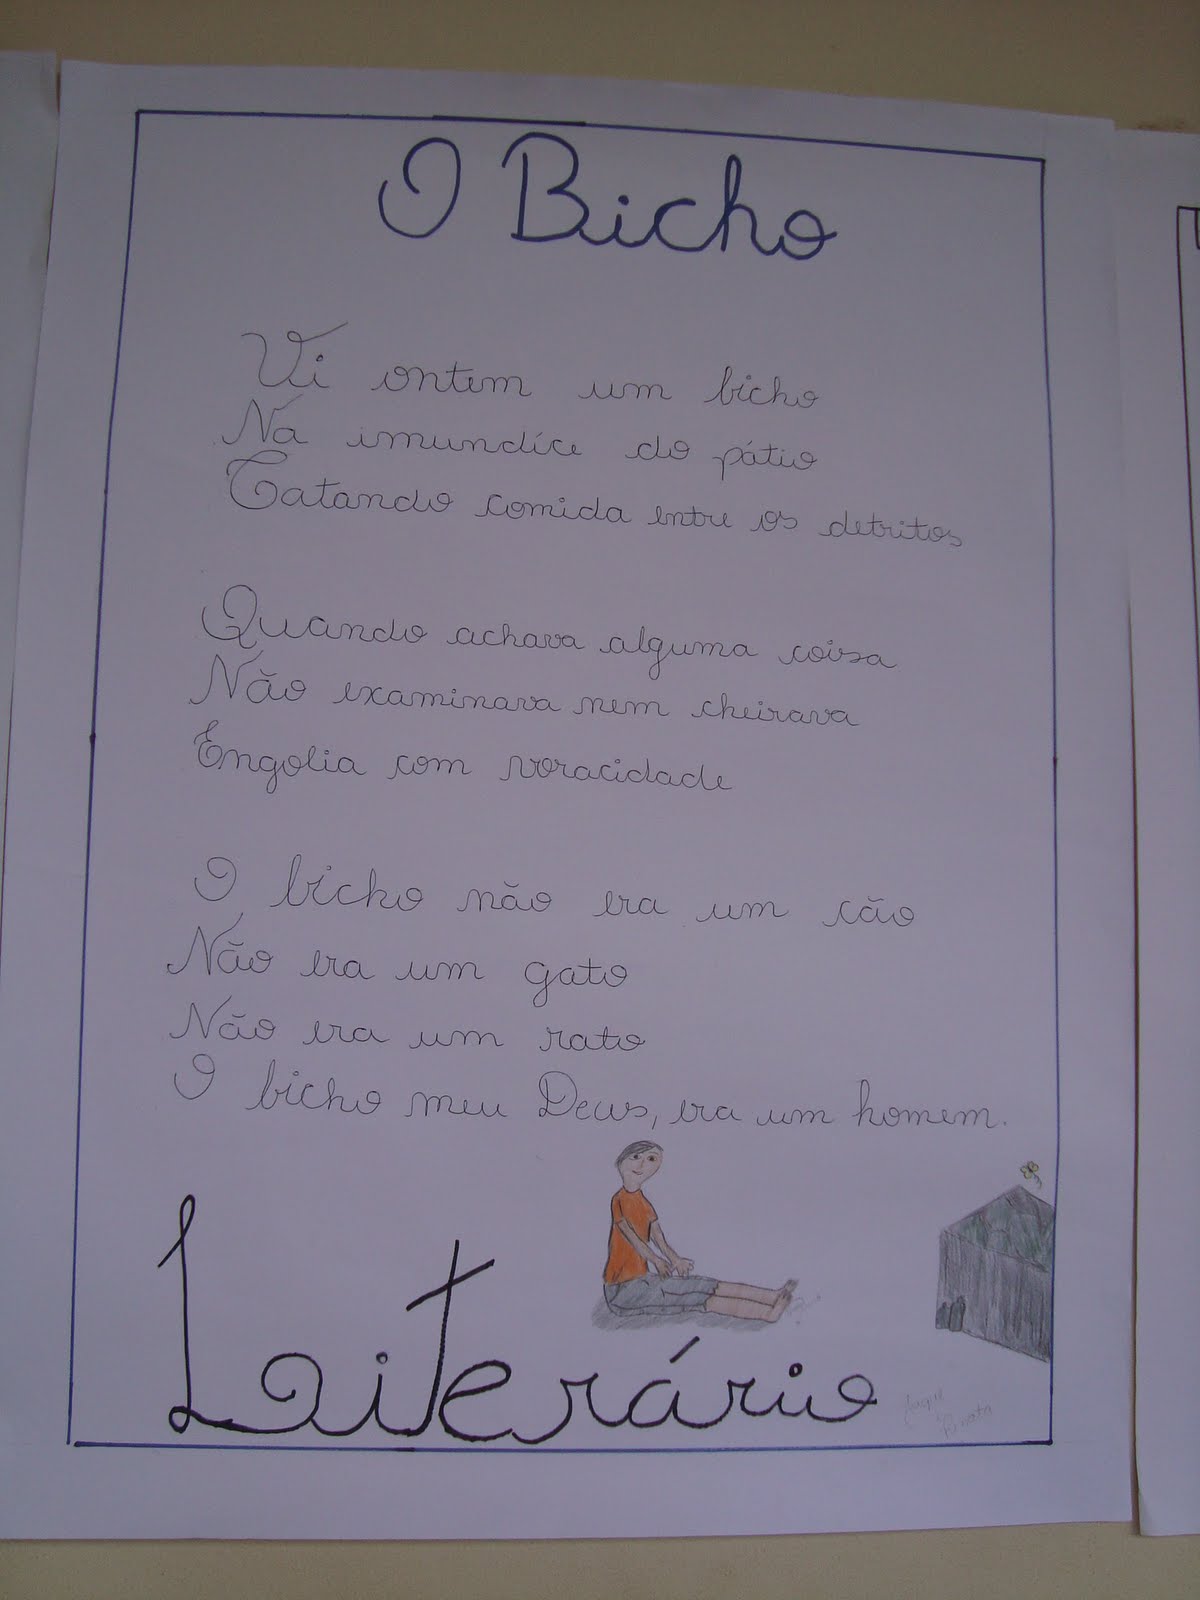 O Bicho
Vi ontem um bicho
Na imundíce do pátio
Catando comida entre os detritos
Quando achava alguma coisa
Não examinava nem cheirava
Engolia com voracidade
O bicho não era um cão
Não era um gato
Não era um rato
O bicho meu Deus, era um homem.
Laiterário